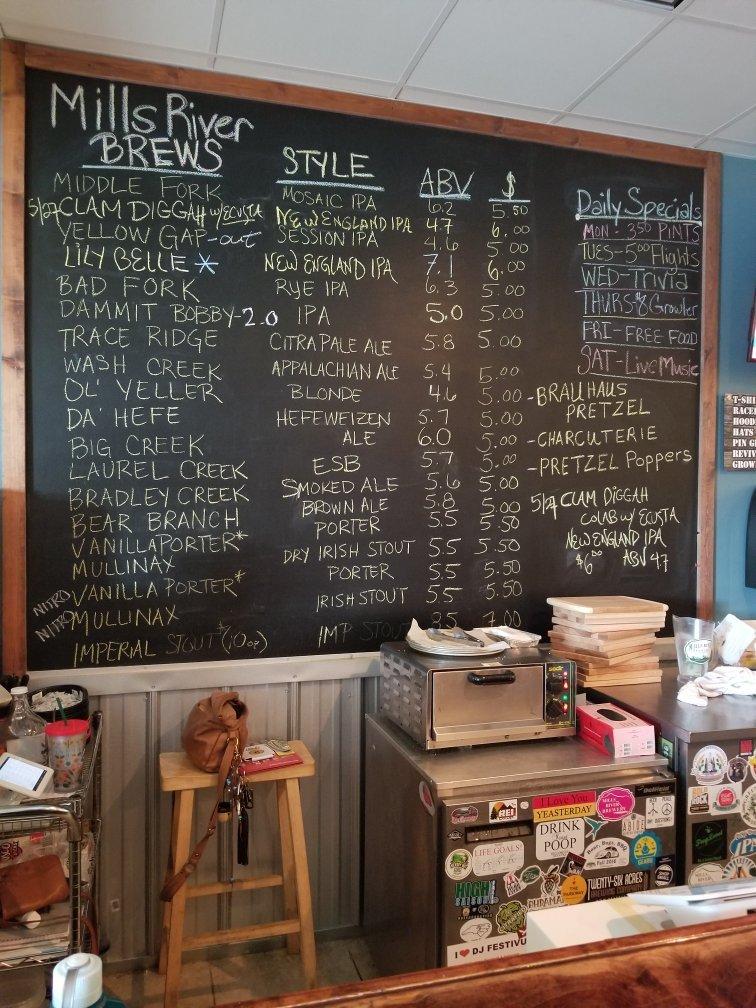 Mills River
BREWS
STYLE
ABV
$
MIDDLE FORK MOSAIC IPA 6.2 5.50
5/27 CLAM DIGGAH w/ECUSTA NEW ENGLAND IPA 4.7 6.00
YELLOW GAP-out SESSION IPA 4.6 5.00
LILY BELLE * NEW ENGLAND IPA 7.1 6.00
BAD FORK RYE IPA 6.3 5.00
DAMMIT BOBBY-2.0 IPA 5.0 5.00
TRACE RIDGE CITRA PALE ALE 5.8 5.00
WASH CREEK APPALACHIAN ALE 5.4 5.00
OL' YELLER BLONDE 4.6 5.00
DA' HEFE HEFEWEIZEN 5.7 5.00
BIG CREEK ALE 6.0 5.00
LAUREL CREEK ESB 5.7 5.00
BRADLEY CREEK SMOKED ALE 5.6 5.00
BEAR BRANCH BROWN ALE 5.8 5.00
VANILLA PORTER* PORTER 5.5 5.50
MULLINAX DRY IRISH STOUT 5.5 5.50
NITRO VANILLA PORTER* PORTER 5.5 5.50
NITRO MULLINAX IRISH STOUT 5.5 5.50
IMPERIAL STOUT* (10oz) IMP STOUT 8.5 7.00
Daily Specials
MON- 350 PINTS
TUES- 500 Flights
WED-Trivia
THURS-$8 Growler
FRI-FREE FOOD
SAT-Live Music
-BRAUHAUS
PRETZEL
-CHARCUTERIE
-PRETZEL Poppers
5/27 CLAM DIGGAH
COLAB W/ ECUSTA
NEW ENGLAND IPA
$600 ABV 4.7
T-SHI
RACE
HOOD
HATS
PIN G
REVIV
GROW
I Love You
YEASTERDAY
REI
DRINK
POOP
LIFE GOALS:
HIGH
TWENTY-SIX ACRES
BREWING COMPANY
I ❤ DJ FESTIVU